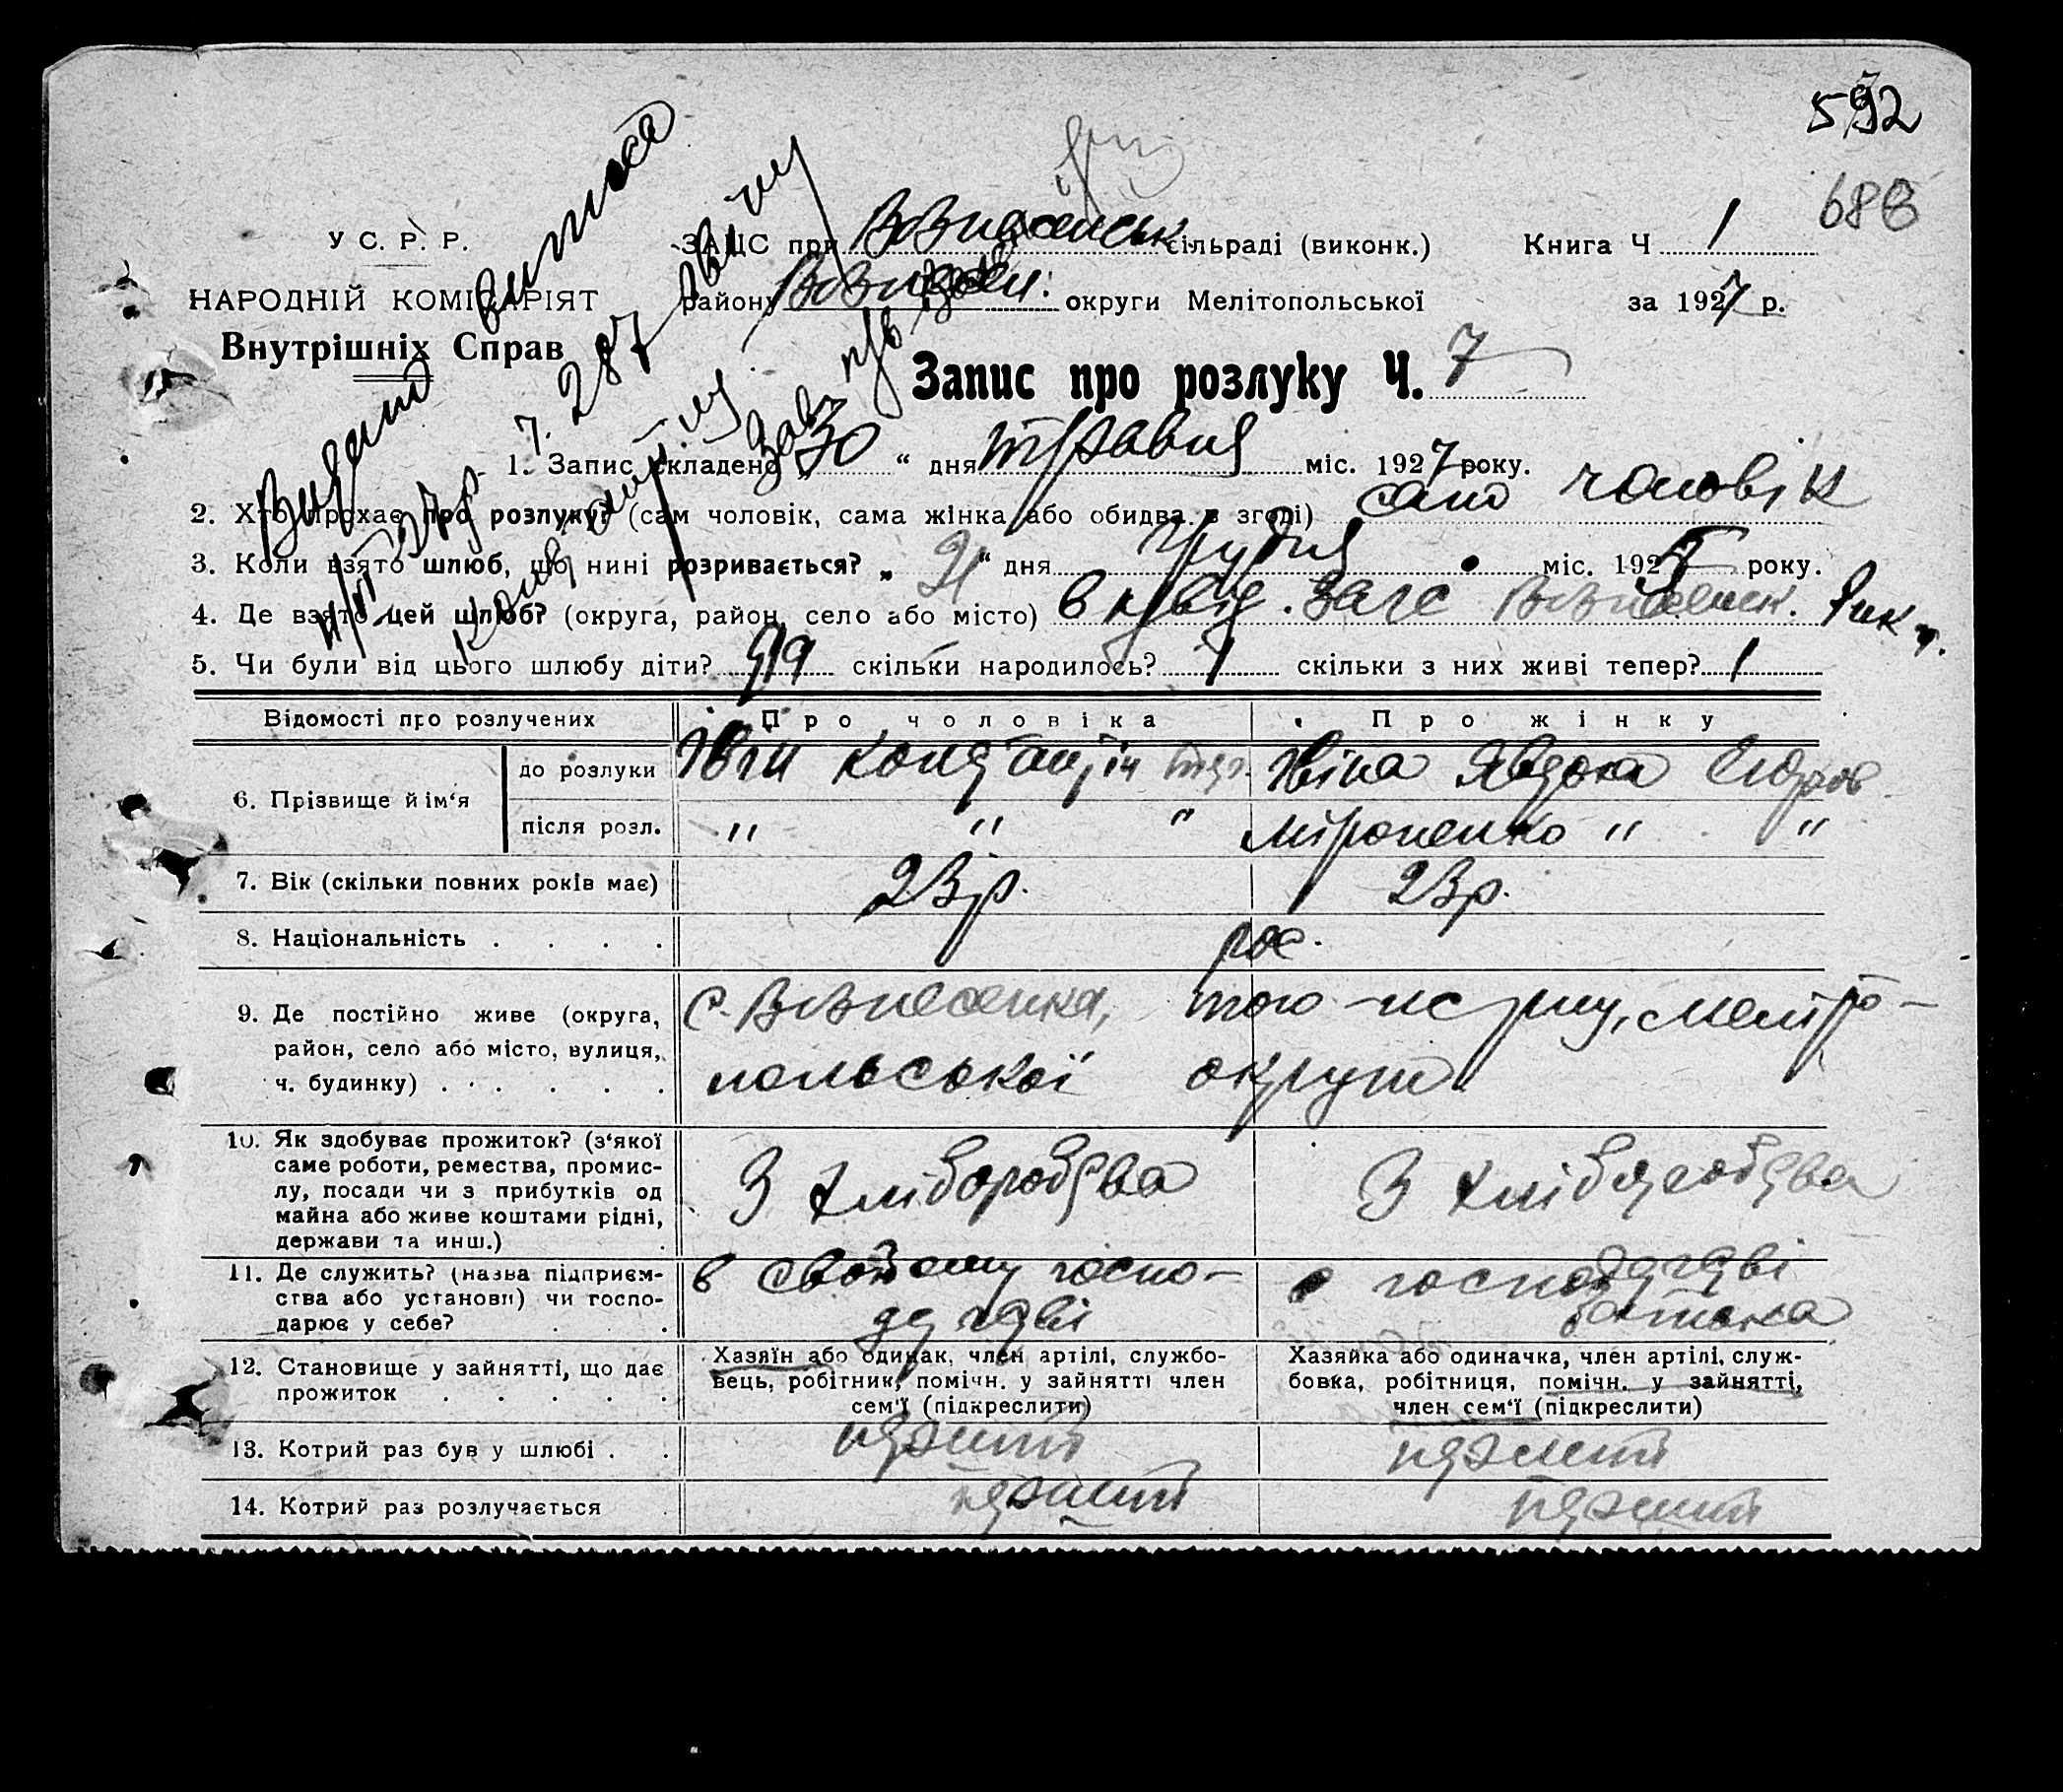 592
688
У С. Р. Р.
НАРОДНІЙ КОМІСАРІЯТ
Внутрішніх Справ
ЗАЦС при Вознесенськ. сільраді (виконк.) Книга Ч 1
району Вознесен. округи Мелітопольської за 1927 р.
Запис про розлуку Ч. 7
Видано виписа
Ч. 287
1. Запис складено „30“ дня травня міс. 1927 року.
2. Хто прохає про розлуку? (сам чоловік, сама жінка або обидва в згоді) сам чоловік
3. Коли взято шлюб, що нині розривається? „21“ дня грудня міс. 1925 року.
4. Де взято цей шлюб? (округа, район, село або місто) в Загс Вознесенск.
5. Чи були від цього шлюбу діти? скільки народилось? 1 скільки з них живі тепер? 1
Відомості про розлучених Про чоловіка Про жінку
6. Прізвище й ім‘я до розлуки Івін Івіна Явдоха
після розл. " " " Міроненко " "
7. Вік (скільки повних років має) 23 р. 23 р.
8. Національність . . . . рос.
9. Де постійно живе (округа, с. Вознесенка, того-ж р-ну, Меліто-
район, село або місто, вулиця, польської округи
ч. будинку) . . . . . .
10. Як здобуває прожиток? (з‘якої
саме роботи, ремества, промис- З хліборобства З хліборобства
лу, посади чи з прибутків од
майна або живе коштами рідні,
держави та инш.)
11. Де служить? (назва підприєм- в свойому госпо- в господарстві
ства або установи) чи госпо- дарстві батька
дарює у себе?
12. Становище у зайнятті, що дає Хазяїн або одинак, член артілі, службо- Хазяйка або одиначка, член артілі, служ-
прожиток . . . . . вець, робітник, помічн. у зайнятті член бовка, робітниця, помічн. у зайнятті,
сем‘ї (підкреслити) член сем‘ї (підкреслити)
13. Котрий раз був у шлюбі . . перший перший
14. Котрий раз розлучається перший перший